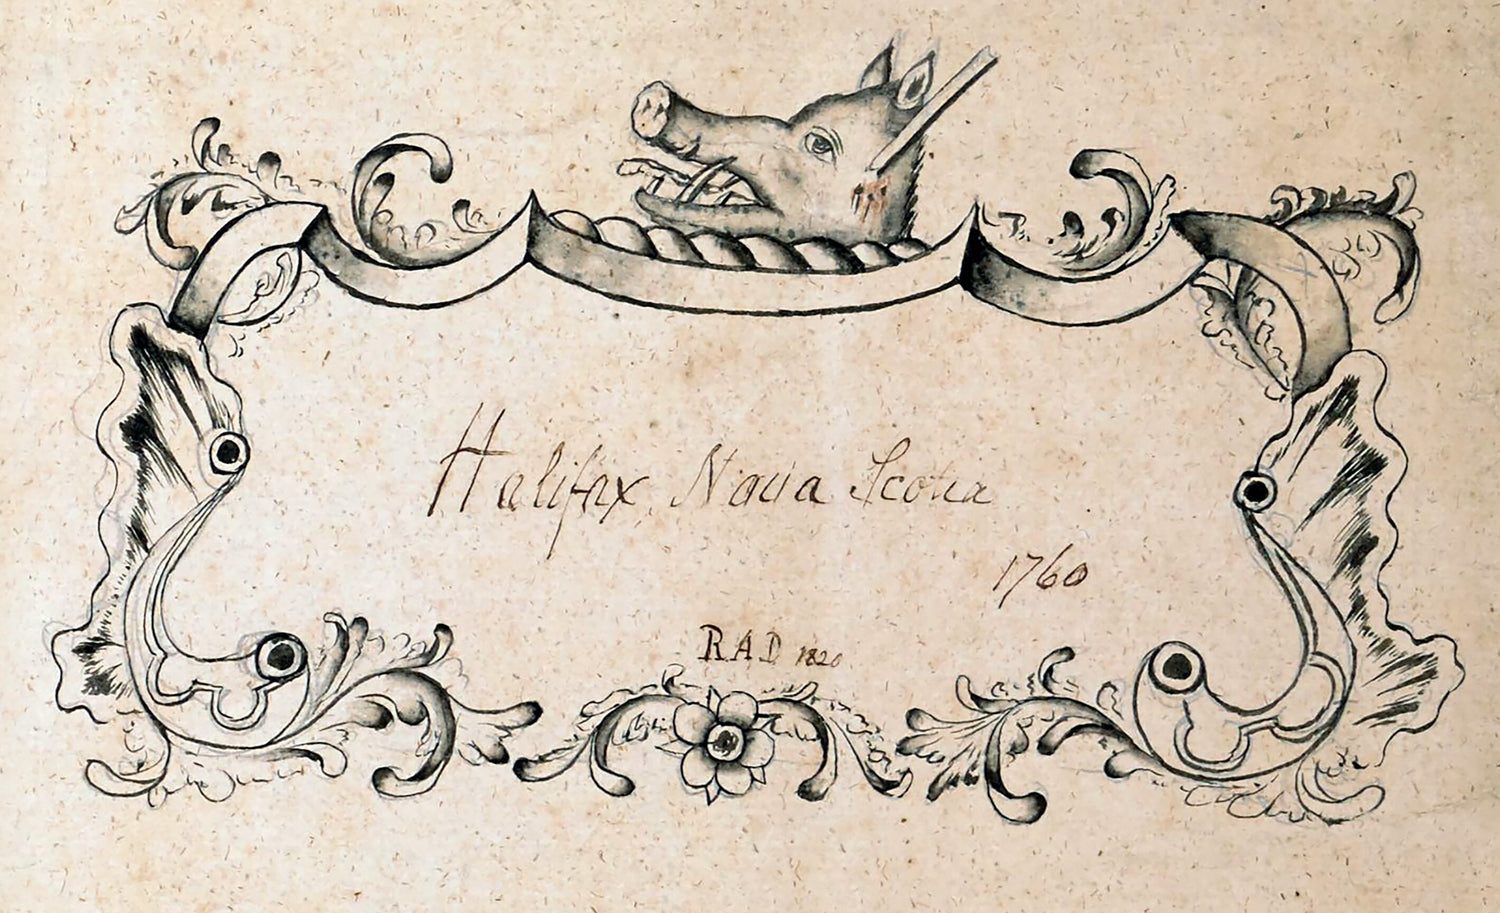 Halifax Nova Scotia
1760
RAD 1820